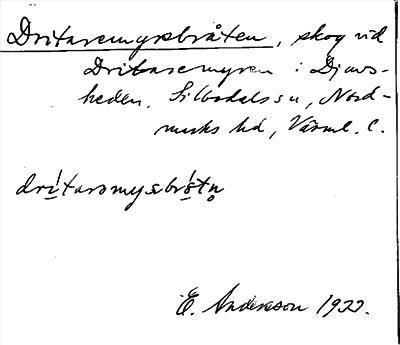 Dritaremyrsbråten, skog vid
Dritaremyren i Djävs-
heden. Silbodals sn, Nord-
marks hd, Värml. l.
dritaromysbrǫtn̥
E. Andersson 1922.